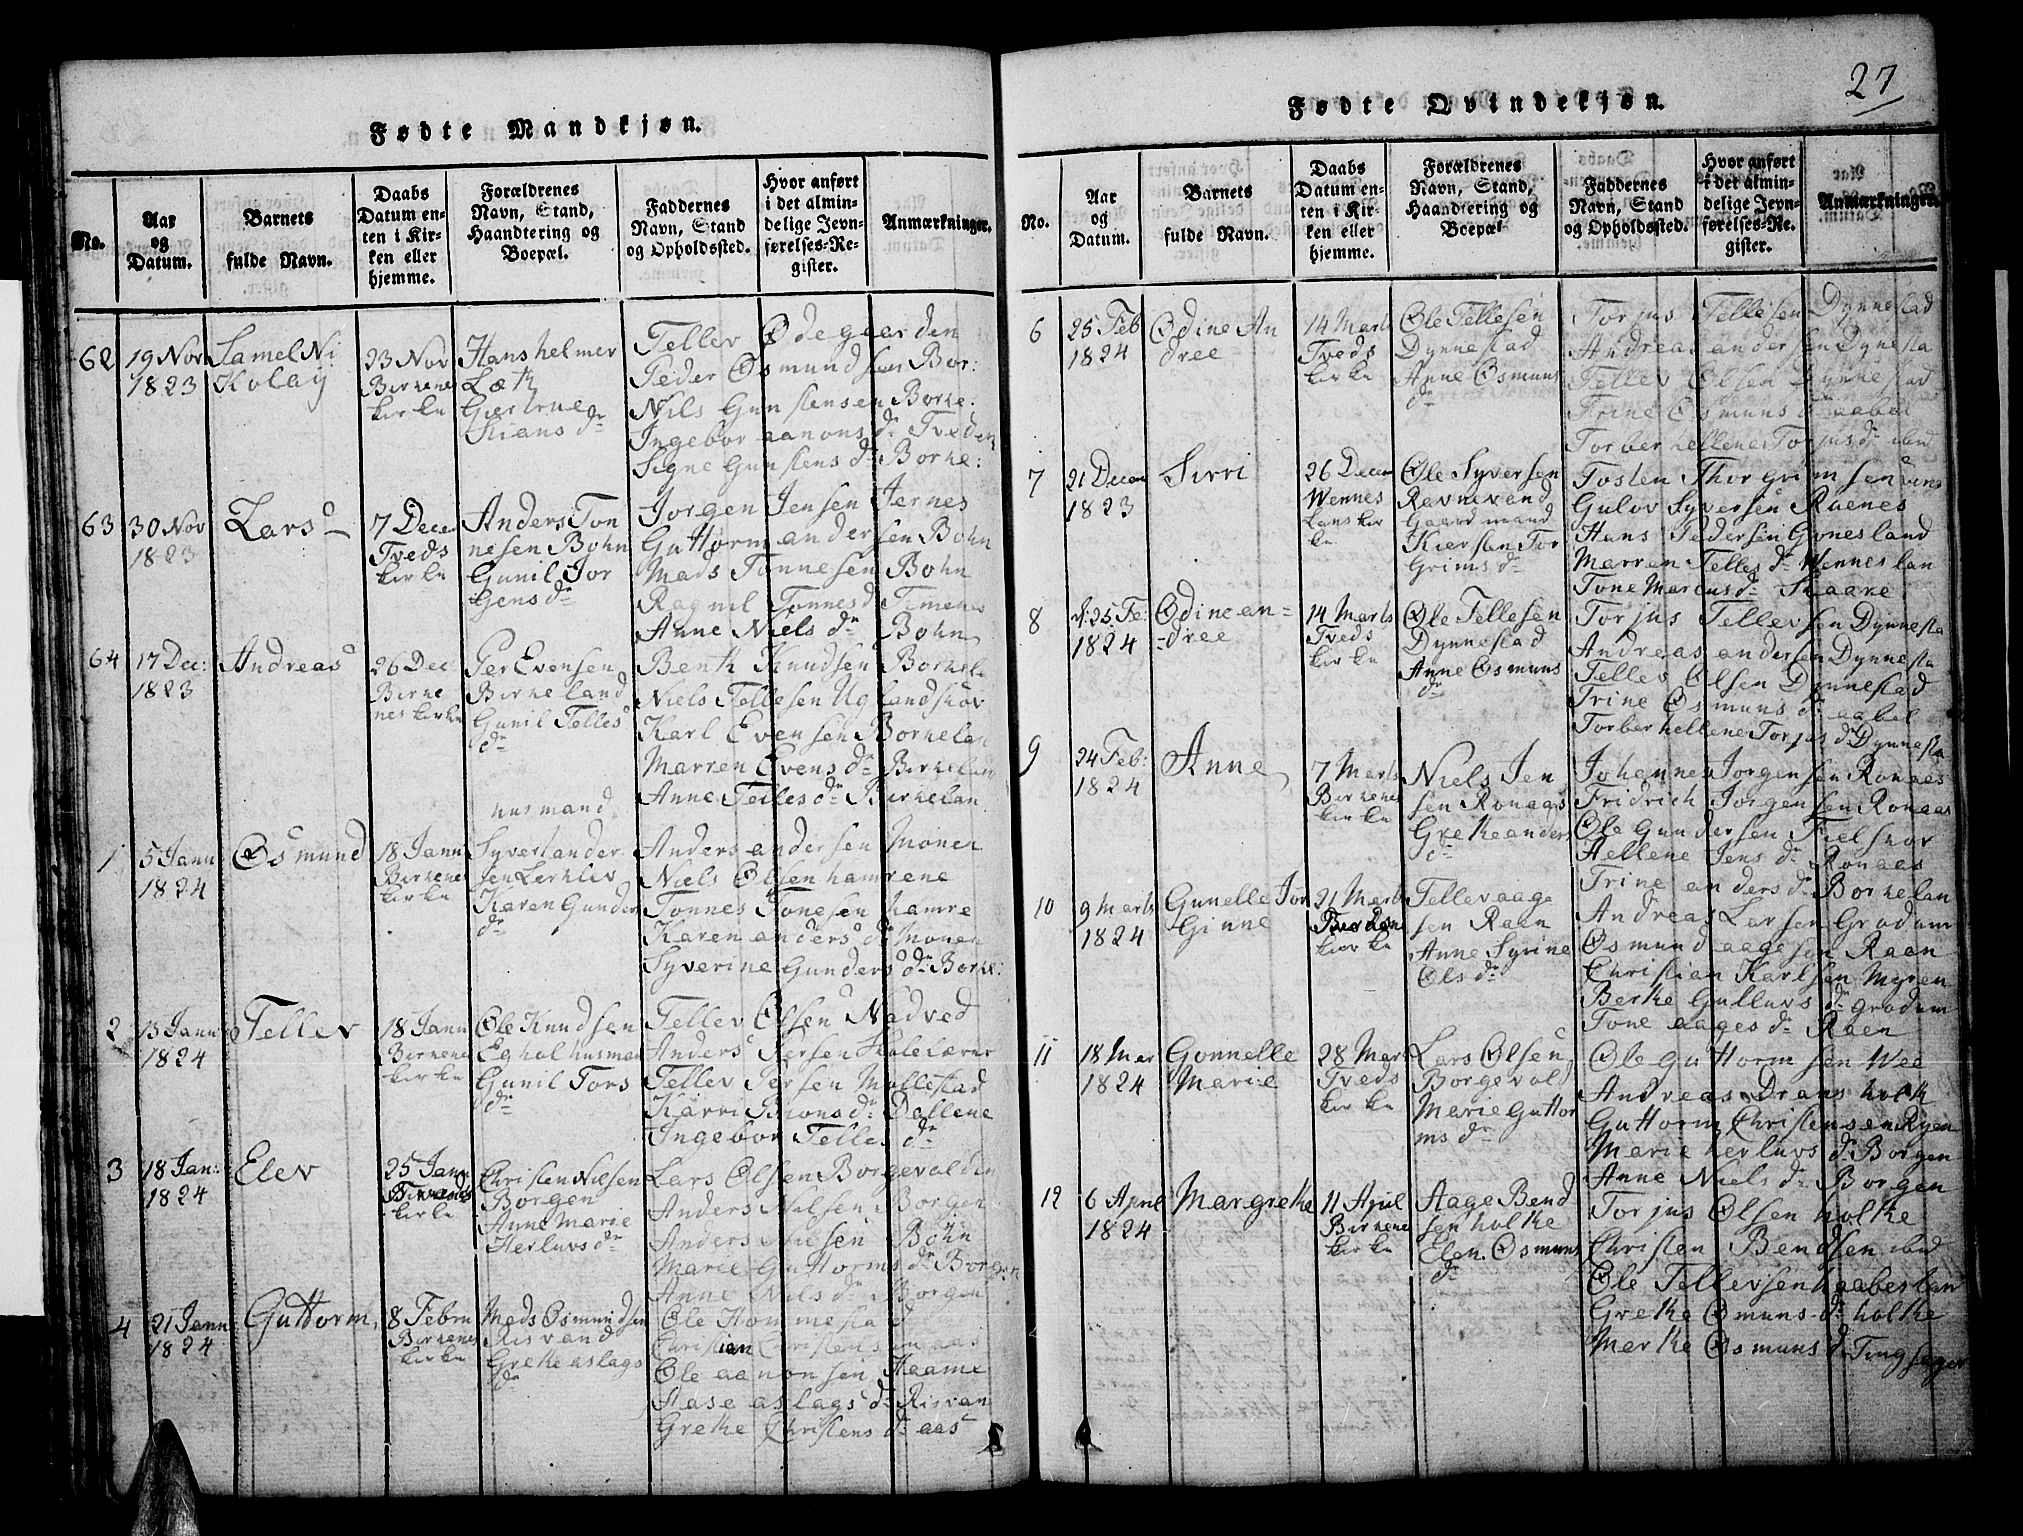 27
Fødte Mandkjøn.
No.
Aar
og
Datum.
Barnets
fulde Navn.
Daabs
Datum en-
ten i Kir-
ken eller
hjemme.
Forældrenes
Navn, Stand,
Haandtering og
Boepæl.
Faddernes
Navn, Stand
og Opholdssted.
Hvor anført
i det almin-
delige Jevn-
førelses-Re-
gister.
Anmærkninger.
62
19 Nov
1823
Samel Ni
Kolay
23 Nov
Birkenes
kirke
Hans helmer
Læth
Giertrue
Kians dr
Tellev Ødegaarden
Peder Osmundsen Bor:
Nils Gunstensen Borke:
Ingebor aanons dr Tveden
Signe Gunstens dr Borke:
63
30 Nov
1823
Lars
7 Decem
Tveds
kirke
Anders Ton
nesen Bohn
Gunil Jor
gens dr
Jorgen Jensen Jernes
Guttorm andersen Bohn
Mads Tonnesen Bohn
Ragnil Tonnes d Timenes
Anne Niels dr Bohn
64
17 Dec:
1823
Andreas
26 Dec
Birke
nes kirke
Per Evensen
Birkeland
Gunil Telles
dr
Benth Knudsen Borkela
Niels Tellesen Uglandskov
Karl Evensen Borkelan
Marren Evens dr Birkelan
Anne Telles dr Birkelan
1
5 Jann
1824
Osmund
18 Jann
Birkenes
kirke
husmand
Syvert ander
sen Lerklev
Karen Gunder
dr
Anders andersen Monen
Niels Olsen hamrene
Tonnes Tonesen hamre
Karen anders dr Monen
Syverine Gunders dr Borke:
2
13 Jann
1824
Tellev
18 Jann
Birkenes
kirke
Ole Knudsen
Eghol husman
Gunil Tors
dr
Tellev Olsen Nadved
Anders Persen Skolelærer
Tellev Persen Mollestad
Karri Bions dr Daslene
Ingebor Telles dr
3
18 Jan:
1824
Elev
25 Jann
kirke
Christen Nielsen
Borgen
Anne Marie
Herluvs dr
Lars Olsen Borgevolden
Anders Nilsen Borgen
Anders Nilsen Bohn
Marie Guttorms dr Borgen
Anne Nils dr Borgen
4
21 Jann
1824
Guttorm
8 Febru
Birkenes
kirke
Mads Osmundsen
Risvand
Grethe aslags
dr
Ole Hommestad
Christian Christensen aas
Ole aanonsen Haame
Aase aslags dr Risvan
Grethe Christens dr aas
Fødte Qvindekjøn.
No.
Aar
og
Datum.
Barnets
fulde Navn.
Daabs
Datum en-
ten i Kir-
ken eller
hjemme.
Forældrenes
Navn, Stand,
Haandtering og
Boepæl
Faddernes
Navn, Stand
og Opholdssted.
Hvor anført
i det almin-
delige Jevn-
førelses-Re-
gister.
Anmærkninger.
6
25 Feb
1824
Odine An
dree
14 Marts
Tveds
kirke
Ole Tellesen
Dynnestad
Anne Osmuns
dr
Torjus Tellesen Dynnestad
Andreas andersen Dynesta
Tellev Olsen Dynnestad
Trine Osmuns dr aabel
Torber hellene Torjus dr ibid
7
21 Decem
1823
Sirri
26 Decem
Wennes
lans kir
ke
Ole Syversen
Ravnevand
Gaardmand
Kiersten Tor
Grims dr
Tosten Thorgrimsen
Gulov Syversen Raenes
Hans Pedersen Govesland
Marren Telles dr Wenneslan
Tone Marcus dr Skaare
8
d: 25 Fe:
1824
Odine an=
=dree
14 Marts
Tveds
kirke
Ole Tellesen
Dynnestad
Anne Osmuns
dr
Torjus Tellevsen Dynnesta
Andreas andersen Dynnesta
Tellev Olsen Dynnestad
Trine Osmuns dr aabel
Torber hellene Torjus dr Dynnesta
9
24 Feb:
1824
Anne
7 Marts
Birkenes
kirke
Niels Jen
sen Ronaas
Grethe anders
dr
Johannes Jorgensen Ronaas
Fridrich Jorgensen Ronaas
Ole Gundersen Fielskor
Hellene Jens dr Ronaas
Trine anders dr Borkelan
10
9 Marts
1824
Gunelle Jor
Ginne
21 Marts
kirke
Tellev aage
sen Raen
Anne Syrine
Ols dr
Andreas Larsen Grodum
Osmund aagesen Raan
Christian Karlsen Myren
Berthe Gulluvs dr Grodum
Tone aages dr Raen
11
18 Mar
1824
Gonnelle
Marie
28 Mars
Tveds
kirke
Lars Olsen
Borgevol
Marie Guttor
ms dr
Ole Guttormsen Wee
Andreas Drans holth
Guttorm Christensen Ryen
Marie herluvs dr Borgen
Anne Niels dr Borgen
12
6 April
1824
Margrethe
11 April
Birkene
kirke
Aage Bend
sen holthe
Elen Osmuns
dr
Torjus Olsen holthe
Christen Bendsen ibid
Ole Tellevsen haabeslan
Grethe Osmuns dr holthe
Merthe Osmuns dr Tingsager